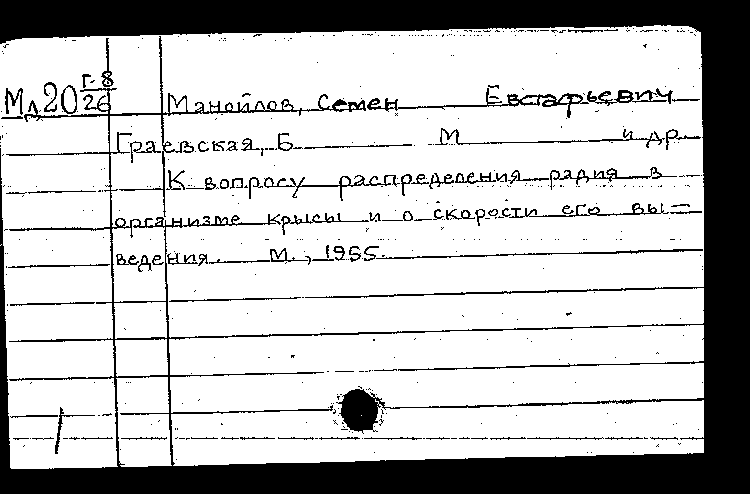 Мл20 Г-8/26 Манойлов, Семен Евстафьевич
Граевская, Б М и др.
К вопросу распределения радия в
организме крысы и о скорости его вы-
ведения. М., 1955.